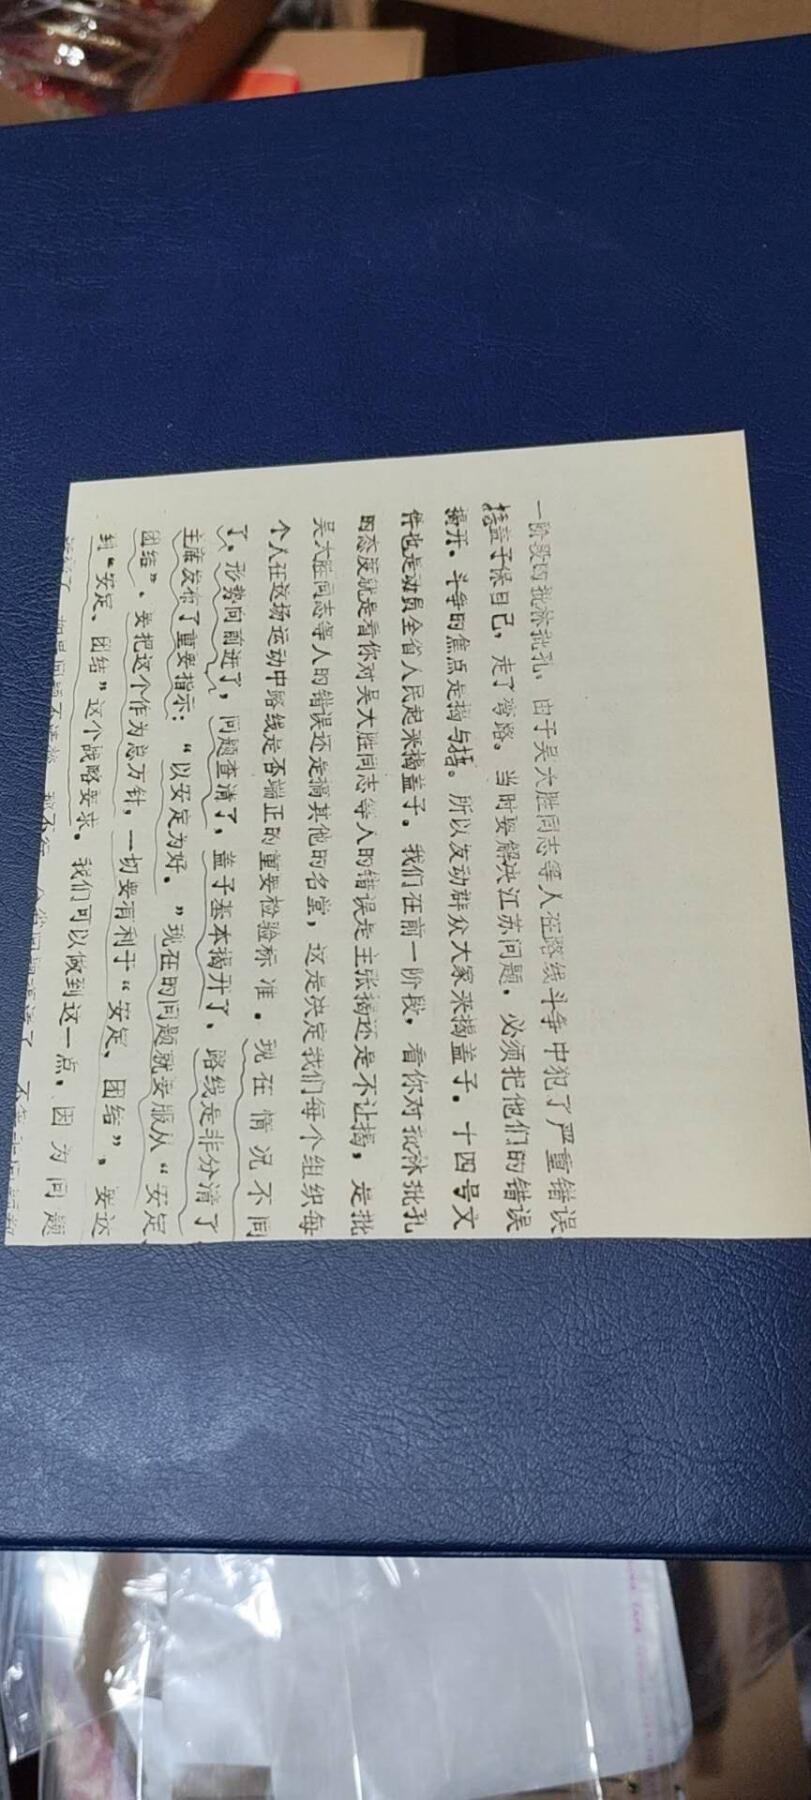 一阶段的批林批孔，由于吴大胜同志等人在路线斗争中犯了严重错误
捂盖子保自己，走了弯路。当时要解决江苏问题，必须把他们的错误
揭开。斗争的焦点是揭与捂。所以发动群众大家来揭盖子。十四号文
件也是动员全省人民起来揭盖子。我们在前一阶段，看你对批林批孔
的态度就是看你对吴大胜同志等人的错误是主张揭还是不让揭，是批
吴大胜同志等人的错误还是搞其他的名堂，这是决定我们每个组织每
个人在这场运动中路线是否端正的重要检验标准。现在情况不同
了。形势向前进了，问题查清了，盖子基本揭开了、路线是非分清了
主席发布了重要指示：“以安定为好。”现在的问题就要服从“安定、
团结”、要把这个作为总方针，一切要有利于“安定、团结”，要达
到“安定、团结”这个战略要求。我们可以做到这一点。因为问题